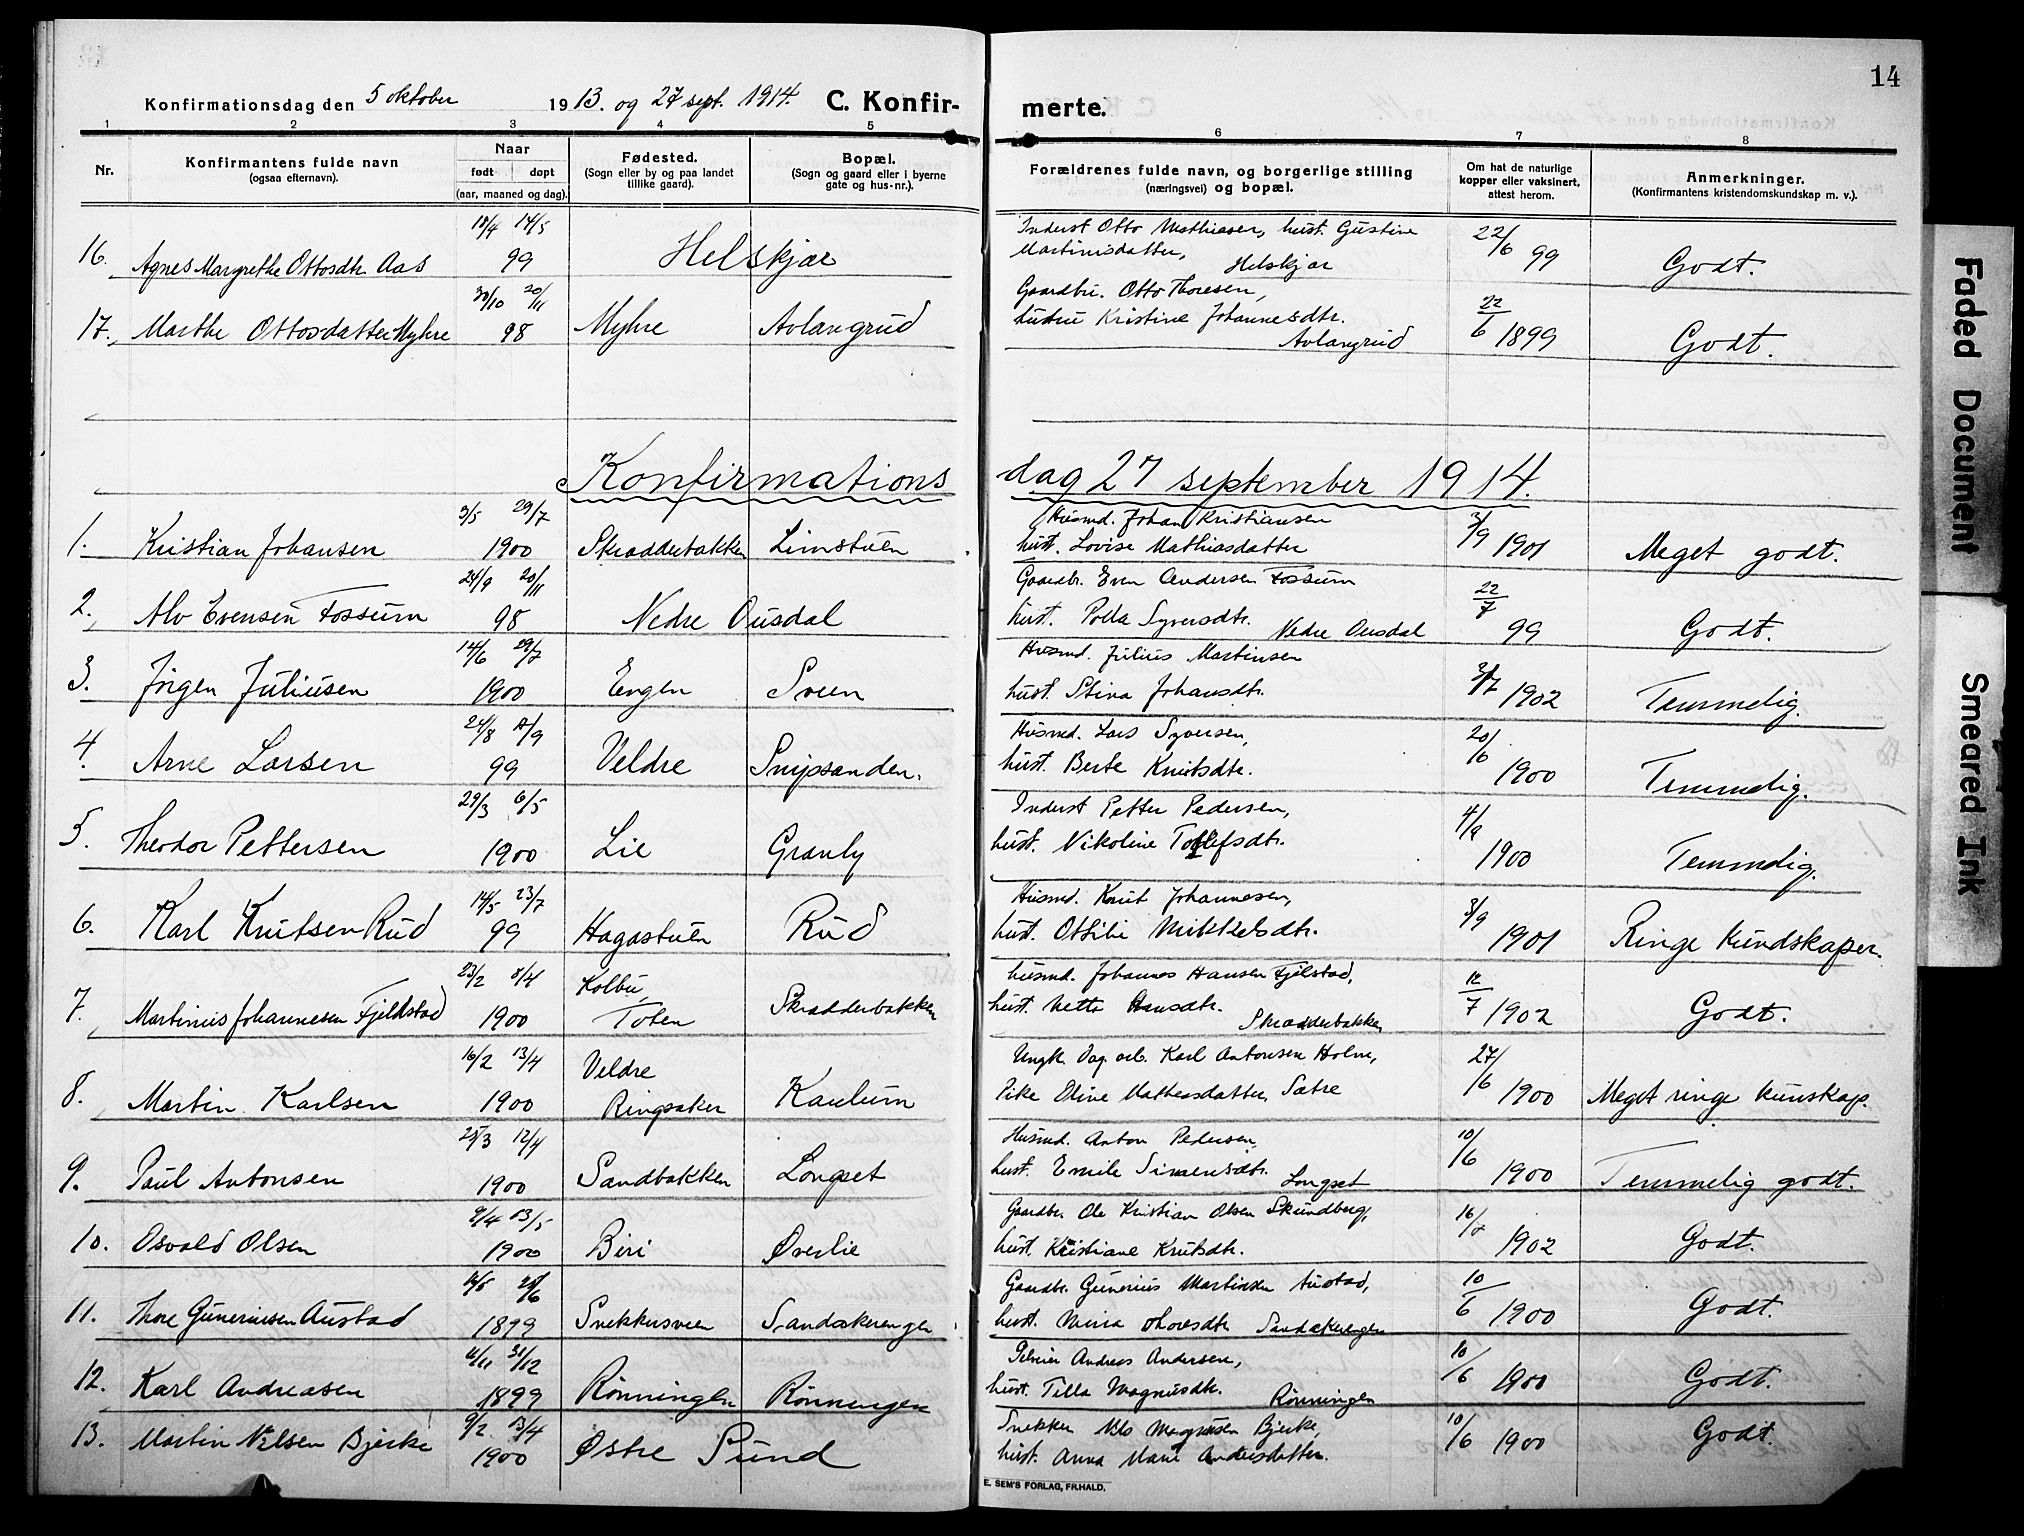 14
Konfirmationsdag den 5 oktober 1913. og 27 sept. 1914. C. Konfir- merte.
1 2 3 4 5 6 7 8
Nr. Konfirmantens fulde navn (ogsaa efternavn). Naar født døpt (aar, maaned og dag). Fødested. (Sogn eller by og paa landet tillike gaard). Bopæl. (Sogn og gaard eller i byerne gate og hus-nr.). Forældrenes fulde navn, og borgerlige stilling (næringsvei) og bopæl. Om hat de naturlige kopper eller vaksinert, attest herom. Anmerkninger. (Konfirmantens kristendomskundskap m. v.).
18/4 14/5 Inderst Otto Mathiasen, hust. Gustine
16. Agnes Margrethe Ottosdtr. Aas 99 Helskjær Martinusdatter, Helskjær 22/6 99 Godt.
30/10 20/11 Gaardbr. Otto Thoresen,
17. Marthe Ottosdatter Myhre 98 Myhre Avlangrud hustru Kristine Johannesdtr. Avlangrud 22/6 1899 Godt.
Konfirmations dag 27 september 1914.
3/5 29/7 Husmd. Johan Kristiansen
1. Kristian Johansen 1900 Skradderbakken Limstuen hust. Lovise Mathiasdatter 3/9 1901 Meget godt.
24/9 20/11 Gaardbr. Even Andersen Fossum
2. Alv Evensen Fossum 98 Nedre Ousdal hust. Polla Syversdtr. Nedre Ousdal 22/7 99 Godt.
14/6 29/7 Husmd. Julius Martinsen
3. Jörgen Juliusen 1900 Engen Sveen hust. Stina Johansdtr. 3/7 1902 Temmelig.
24/8 /9 Husmd. Lars Syversen,
4. Arne Larsen 99 Veldre Snipsanden. hust. Berte Knutsdtr. 20/6 1900 Temmelig.
29/3 6/5 Inderst Petter Pedersen,
5. Theodor Pettersen 1900 Lie Granly hust. Nikoline Tollefsdtr. 4/9 1900 Temmelig.
14/5 23/7 Husmd. Knut Johannesen,
6. Karl Knutsen Rud 99 Hagastuen Rud hust. Ottilie Mikkelsdtr. 3/9 1901 Ringe kundskaper.
23/2 8/4 Kolbu, Husmd. Johannes Hansen Fjelstad,
7. Martinius Johannesen Fjeldstad 1900 Toten Skradderbakken hust. Netta Hansdtr. Skradderbakken 12/7 1902 Godt.
16/2 13/4 Veldre Ungk. Dag. arb. Karl Antonsen Holm,
8. Martin Karlsen 1900 Ringsaker Kaulum Pike Eline Matheasdatter Sætre 27/6 1900 Meget ringe kunskap.
25/3 12/4 Husmd. Anton Pedersen,
9. Paul Antonsen 1900 Sandbakken Longset hust. Emile Simensdtr. Longset 10/6 1900 Temmelig godt.
9/4 13/5 Gaardbr. Ole Kristian Olsen Skundberg,
10. Osvald Olsen 1900 Biri Øverlie hust. Kristiane Knutsdtr. 1902 Godt.
Gaardbr. Gunerius Martinsen Austad,
11. Thore Guneriusen Austad 1899 Snekkersveen Sandakerengen hust. Mina Thoresdtr. Sandakerengen 10/6 1900 Godt.
11/11 31/12 Andreas Andersen,
12. Karl Andreasen 1899 Rønningen Rønningen hust. Tilla Magnusdtr. Rønningen 10/6 1900 Godt.
9/2 13/4 Snekker Nils Magnusen Bjerke,
13. Martin Nilsen Bjerke 1900 Østre Sund hust. Anna Marie Andersdatter. 10/6 1900 Godt.
E. SEM'S FORLAG, FR.HALD.
Faded Document
Smeared Ink